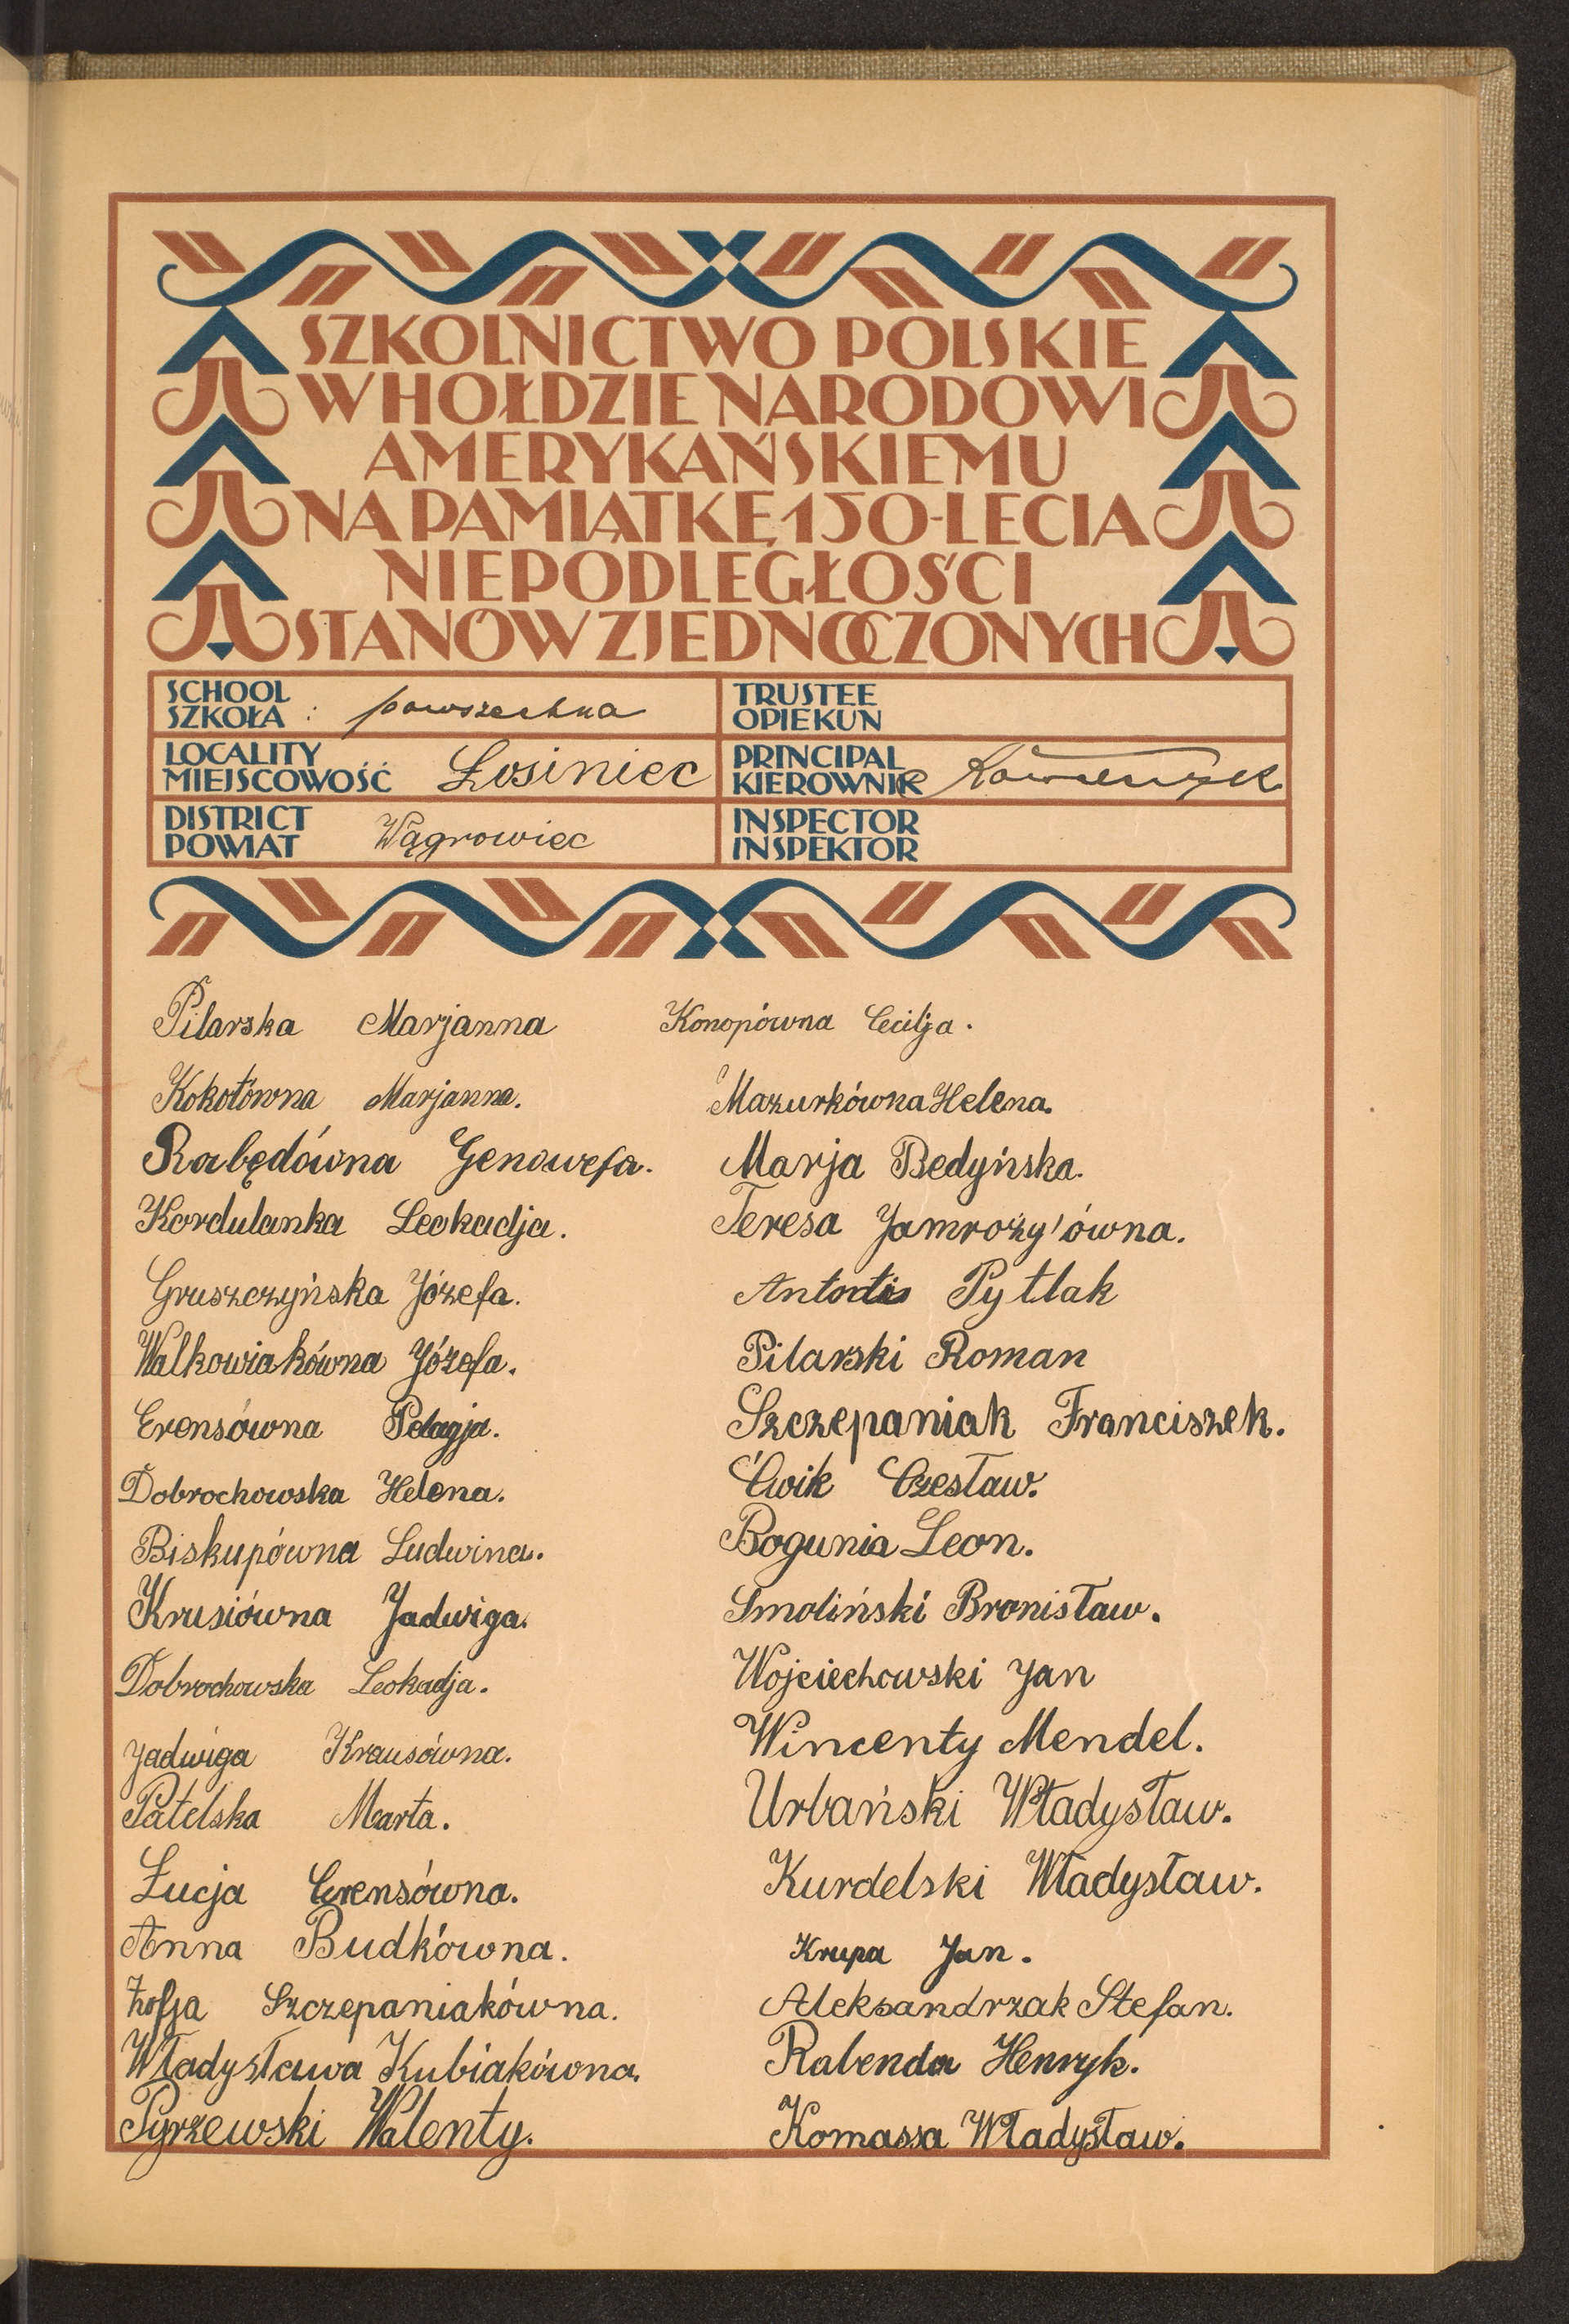 SZKOLNICTWO POLSKIE
W HOŁDZIE NARODOWI
AMERYKAŃSKIEMU
NA PAMIĄTKĘ 150-LECIA
NIEPODLEGŁOŚCI
STANÓW ZJEDNOCZONYCH
SCHOOL
SZKOŁA : powszechna
LOCALITY
MIEJSCOWOŚĆ Łosiniec
DISTRICT
POWIAT Wągrowiec
TRUSTEE
OPIEKUN
PRINCIPAL
KIEROWNIK
INSPECTOR
INSPEKTOR
Pilarska Marjanna
Kokotówna Marjanna.
Rabędówna Genowefa.
Kordulanka Leokadja.
Gruszczyńska Józefa.
Walkowiakówna Józefa.
Erensówna Pelagja.
Dobrochowska Helena.
Biskupówna Ludwina.
Krusiówna Jadwiga.
Dobrochowska Leokadja.
Jadwiga Krausówna.
Patelska Marta.
Łucja Erensówna.
Anna Budkówna.
Zofja Szczepaniakówna.
Władysława Kubiakówna.
Pyrzewski Walenty.
Konopówna Cecilja.
Mazurkówna Helena.
Marja Bedyńska.
Teresa Jamroży'ówna.
Pytlak
Pilarski Roman
Szczepaniak Franciszek.
Ćwik Czesław.
Bogunia Leon.
Smoliński Bronisław.
Wojciechowski Jan
Wincenty Mendel.
Urbański Władysław.
Kurdelski Władysław.
Krupa Jan.
Aleksandrzak Stefan.
Rabenda Henryk.
Komassa Władysław.